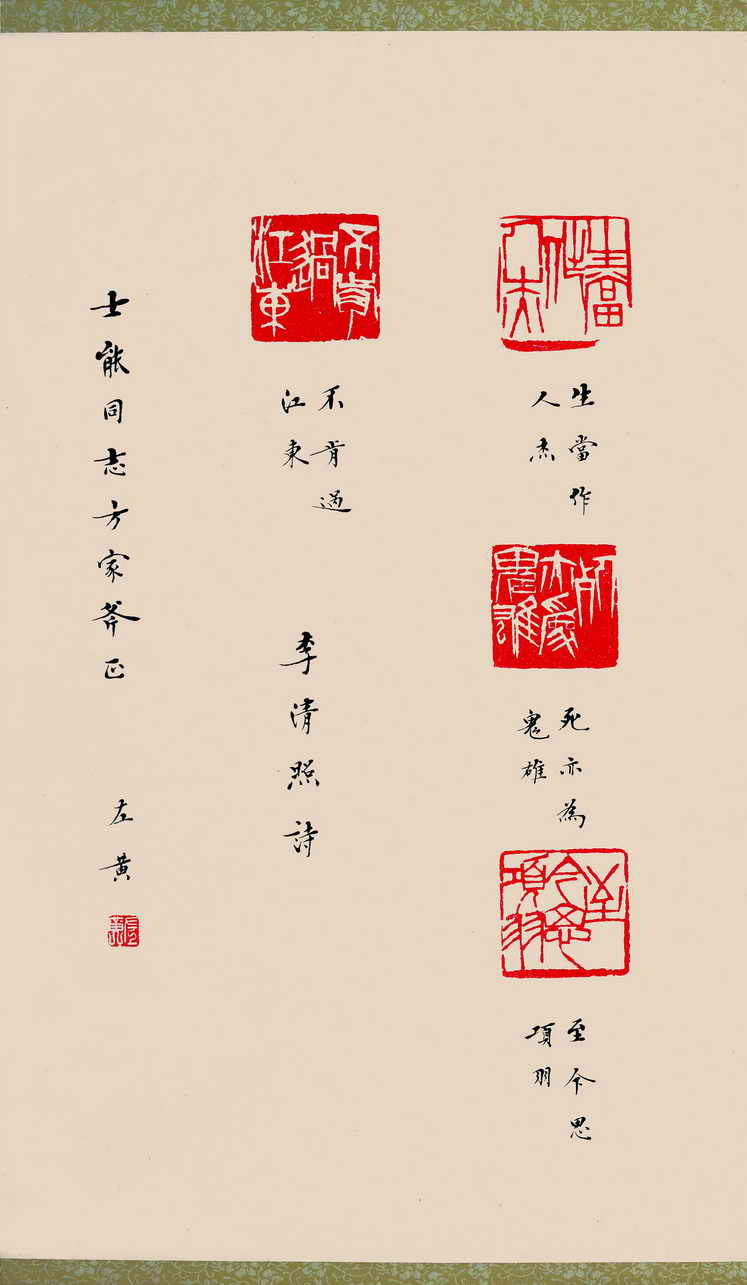 生當作人杰
生當作
人杰
死亦為鬼雄
死亦為
鬼雄
至今思項羽
至今思
項羽
不肯過江東
不肯過
江東
李清照詩
士能同志方家斧正
左黄